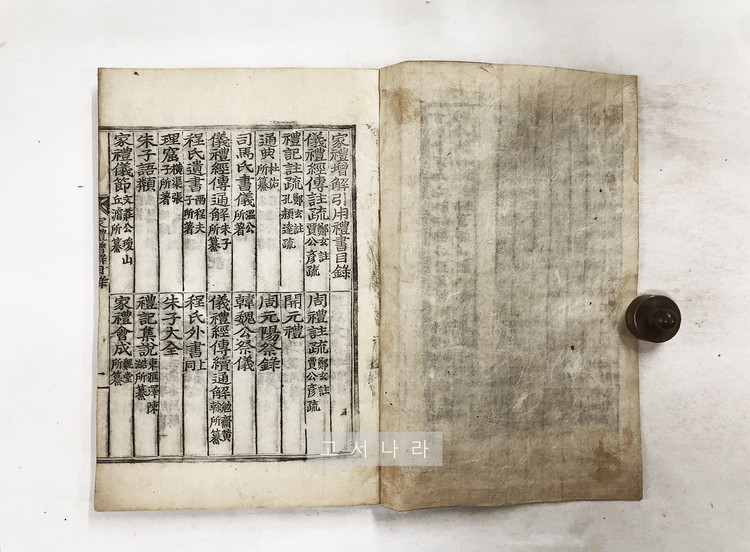 家禮增解引用禮書目錄
儀禮經傳註疏 鄭玄註 賈公彦疏 周禮註疏 鄭玄註 賈公彦疏
禮記註疏 鄭玄註 孔穎達疏 開元禮
通典 杜佑所纂 周元陽祭錄
司馬氏書儀 溫公所著 韓魏公祭儀
儀禮經傳通解 朱子所纂 儀禮經傳續通解 勉齋黃榦所纂
程氏遺書 兩程夫子所著 程氏外書 同上
理窟 橫渠張子所著 朱子大全
朱子語類 禮記集說 東滙澤陳澔所纂
家禮儀節 文莊公瓊山丘濬所纂 家禮會成 魏堂所纂
家禮增解目錄 一
고서나라